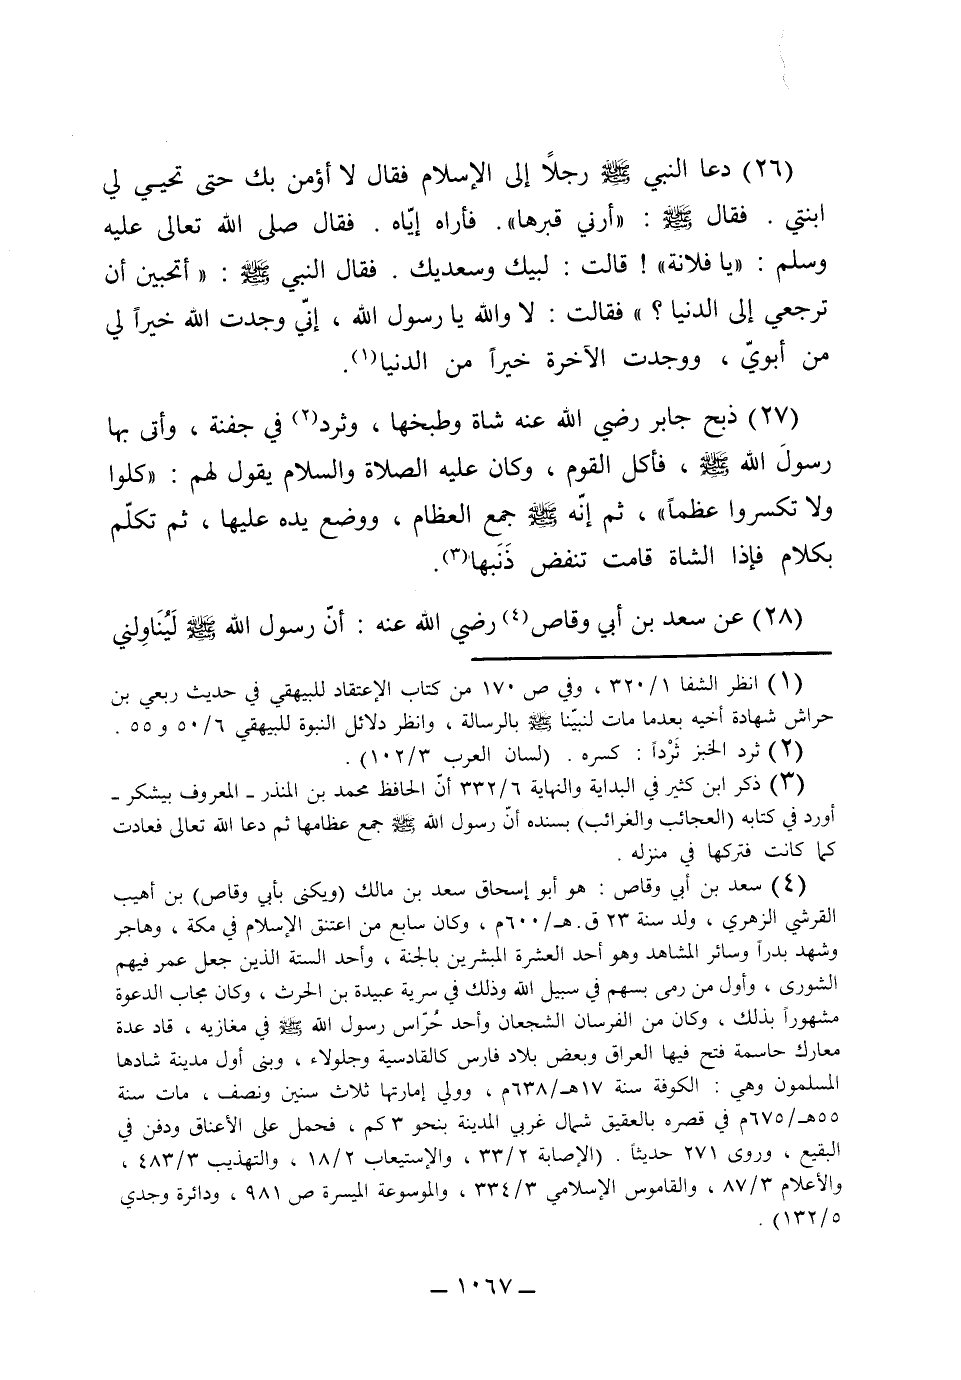 (٢٦) دعا النبي ﷺ رجلاً إلى الإسلام فقال لا أؤمن بك حتى تحيـي لي
ابنتي . فقال ﷺ : «أرني قبرها». فأراه إيّاه . فقال صلى الله تعالى عليه
وسلم : «يا فلانة» ! قالت : لبيك وسعديك . فقال النبي ﷺ : « أتحبين أن
ترجعي إلى الدنيا ؟ » فقالت : لا والله يا رسول الله ، إنّي وجدت الله خيراً لي
من أبويّ ، ووجدت الآخرة خيراً من الدنيا(١).
(٢٧) ذبح جابر رضي الله عنه شاة وطبخها ، وثرد(٢) في جفنة ، وأتى بها
رسولَ الله ﷺ ، فأكل القوم ، وكان عليه الصلاة والسلام يقول لهم : «كلوا
ولا تكسروا عظماً» ، ثم إنّه ﷺ جمع العظام ، ووضع يده عليها ، ثم تكلّم
بكلام فإذا الشاة قامت تنفض ذَنَبها(٣).
(٢٨) عن سعد بن أبي وقاص(٤) رضي الله عنه : أنّ رسول الله ﷺ لَيُنَاوِلني
(١) انظر الشفا ٣٢٠/١ ، وفي ص ١٧٠ من كتاب الإعتقاد للبيهقي في حديث ربعي بن
حراش شهادة أخيه بعدما مات لنبيّنا ﷺ بالرسالة ، وانظر دلائل النبوة للبيهقي ٥٠/٦ و ٥٥ .
(٢) ثرد الخبز ثَرْداً : كسره . (لسان العرب ١٠٢/٣) .
(٣) ذكر ابن كثير في البداية والنهاية ٣٣٢/٦ أنّ الحافظ محمد بن المنذر ـ المعروف بيشكر ـ
أورد في كتابه (العجائب والغرائب) بسنده أنّ رسول الله ﷺ جمع عظامها ثم دعا الله تعالى فعادت
كما كانت فتركها في منزله .
(٤) سعد بن أبي وقاص : هو أبو إسحاق سعد بن مالك (ويكنى بأبي وقاص) بن أهيب
القرشي الزهري ، ولد سنة ٢٣ ق.هـ/٦٠٠م ، وكان سابع من اعتنق الإسلام في مكة ، وهاجر
وشهد بدراً وسائر المشاهد وهو أحد العشرة المبشرين بالجنة ، وأحد الستة الذين جعل عمر فيهم
الشورى ، وأول من رمى بسهم في سبيل الله وذلك في سرية عبيدة بن الحرث ، وكان مجاب الدعوة
مشهوراً بذلك ، وكان من الفرسان الشجعان وأحد حُرّاس رسول الله ﷺ في مغازيه ، قاد عدة
معارك حاسمة فتح فيها العراق وبعض بلاد فارس كالقادسية وجلولاء ، وبنى أول مدينة شادها
المسلمون وهي : الكوفة سنة ١٧هـ/٦٣٨م ، وولي إمارتها ثلاث سنين ونصف ، مات سنة
٥٥هـ/٦٧٥م في قصره بالعقيق شمال غربي المدينة بنحو ٣ كم ، فحمل على الأعناق ودفن في
البقيع ، وروى ٢٧١ حديثاً . (الإصابة ٣٣/٢ ، والإستيعاب ١٨/٢ ، والتهذيب ٤٨٣/٣ ،
والأعلام ٨٧/٣ ، والقاموس الإسلامي ٣٣٤/٣ ، والموسوعة الميسرة ص ٩٨١ ، ودائرة وجدي
١٣٢/٥) .
ـ ١٠٦٧ ـ